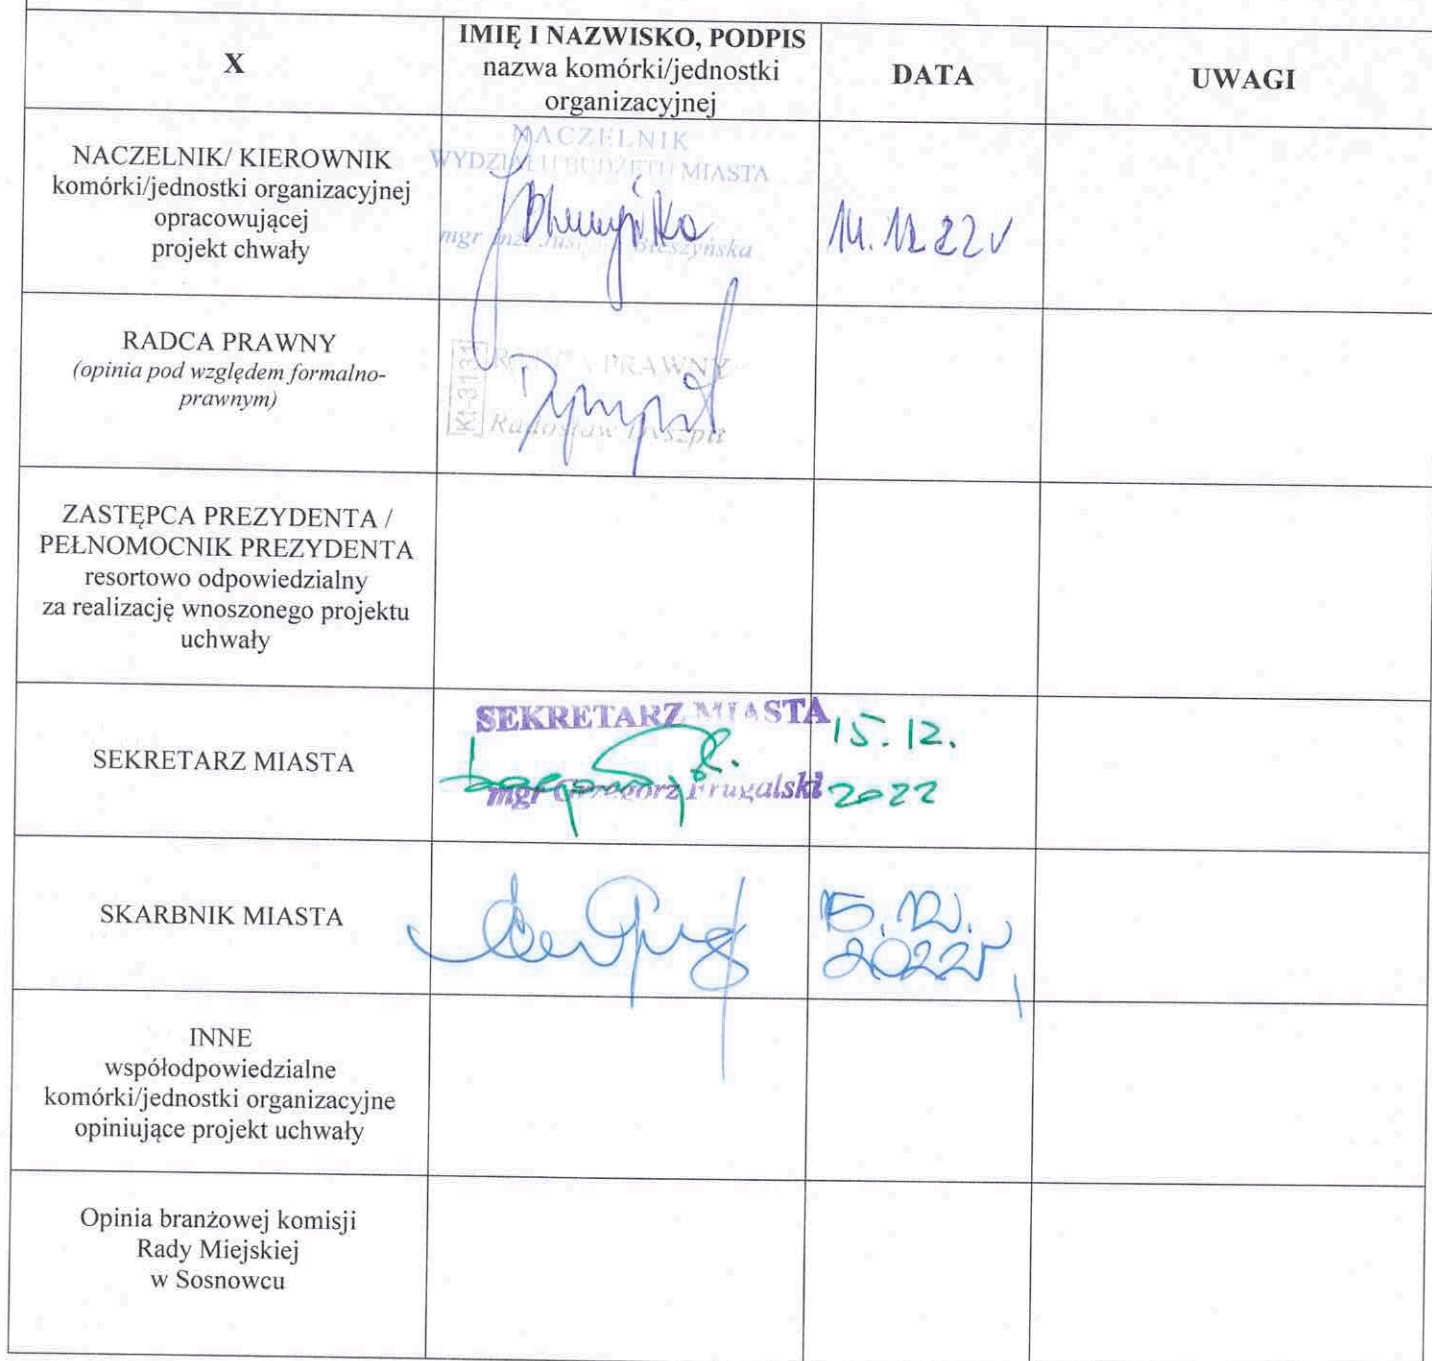 X
IMIĘ I NAZWISKO, PODPIS
nazwa komórki/jednostki
organizacyjnej
DATA
UWAGI
NACZELNIK/ KIEROWNIK
komórki/jednostki organizacyjnej
opracowującej
projekt chwały
NACZELNIK
WYDZIAŁU BUDŻETU MIASTA
mgr inż.
14.12.22r
RADCA PRAWNY
(opinia pod względem formalno-
prawnym)
RADCA PRAWNY
Kt-3131
Radosław
ZASTĘPCA PREZYDENTA /
PEŁNOMOCNIK PREZYDENTA
resortowo odpowiedzialny
za realizację wnoszonego projektu
uchwały
SEKRETARZ MIASTA
SEKRETARZ MIASTA
mgr Grzegorz Frugalski
15.12.
2022
SKARBNIK MIASTA
15.12.
2022r,
INNE
współodpowiedzialne
komórki/jednostki organizacyjne
opiniujące projekt uchwały
Opinia branżowej komisji
Rady Miejskiej
w Sosnowcu